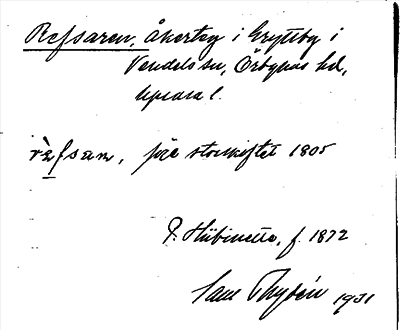 Refsaren, åkerteg i Grytteby i
Vendels sn, Örbyhus hd,
Uppsala l.
ræfsam, före storskiftet 1805
P. Hübinette, f. 1872
Sam Thybén 1931